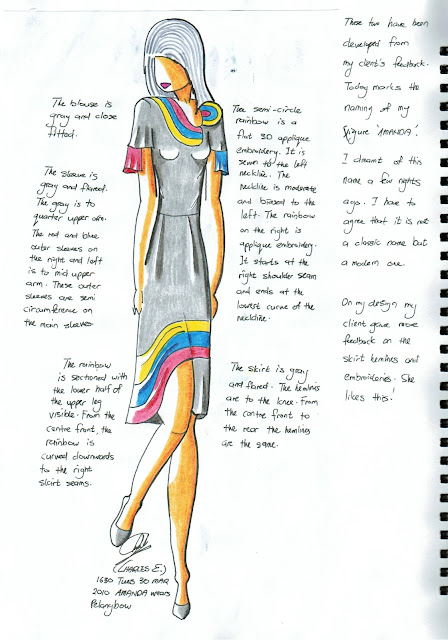 The blouse is
gray and close
fitted.
The sleeve is
gray and flared.
The gray is to
quarter upper arm.
The red and blue
outer sleeves on
the right and left
is to mid upper
arm. These outer
sleeves are semi
circumference on
the main sleeves
The rainbow
is sectioned with
the lower half of
the upper leg
visible. From the
centre front, the
rainbow is
curved downwards
to the right
skirt seams.
The semi-circle
rainbow is a
flat 3D applique
embroidery. It is
sewn to the left
neckline. The
neckline is moderate
and biased to the
left. The rainbow
on the right is
applique embroidery.
It starts at the
right shoulder seam
and ends at the
lowest curve of the
neckline.
The skirt is gray
and flared. The hemlines
are to the knee. From
the centre front to
the rear the hemlines
are the same.
These two have been
developed from
my client's feedback.
Today marks the
naming of my
figure 'AMANDA'.
I dreamt of this
name a few nights
ago. I have to
agree that it is not
a classic name but
a modern one.
On my design my
client gave more
feedback on the
skirt hemlines and
embroideries. She
likes this!
(CHARLES E.)
1630 TUES 30 MAR
2010 AMANDA